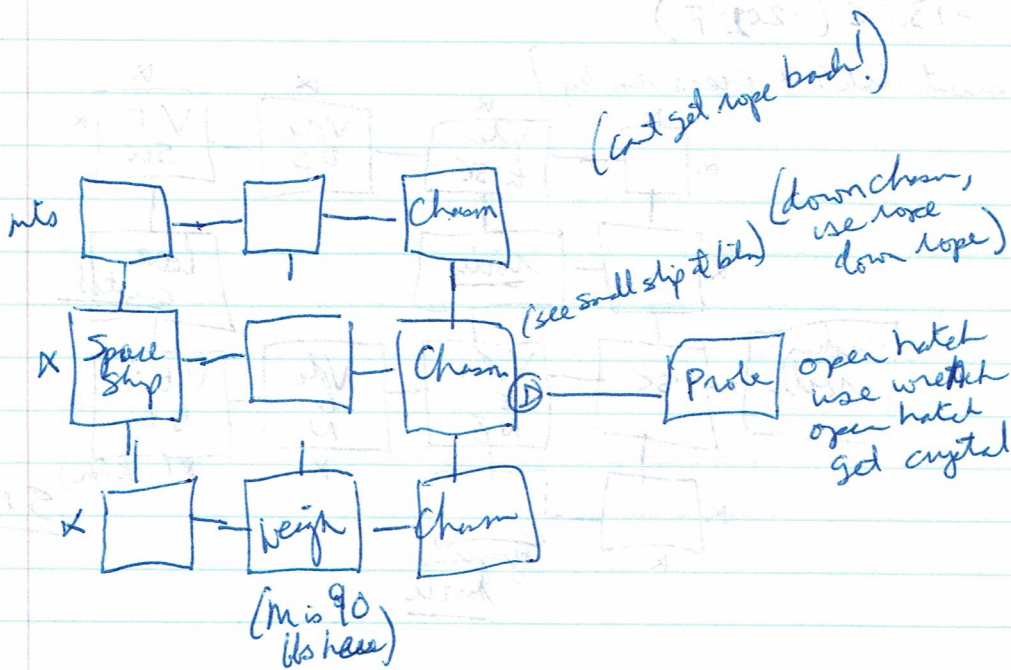 (cant get rope back!)
mts
Chasm
(down chasm,
use rope
down rope)
(see small ship at btm)
x
Space
Ship
Chasm
D
Probe
open hatch
use wrench
open hatch
get crystal
x
Weigh
Chasm
(m is 90
lbs here)